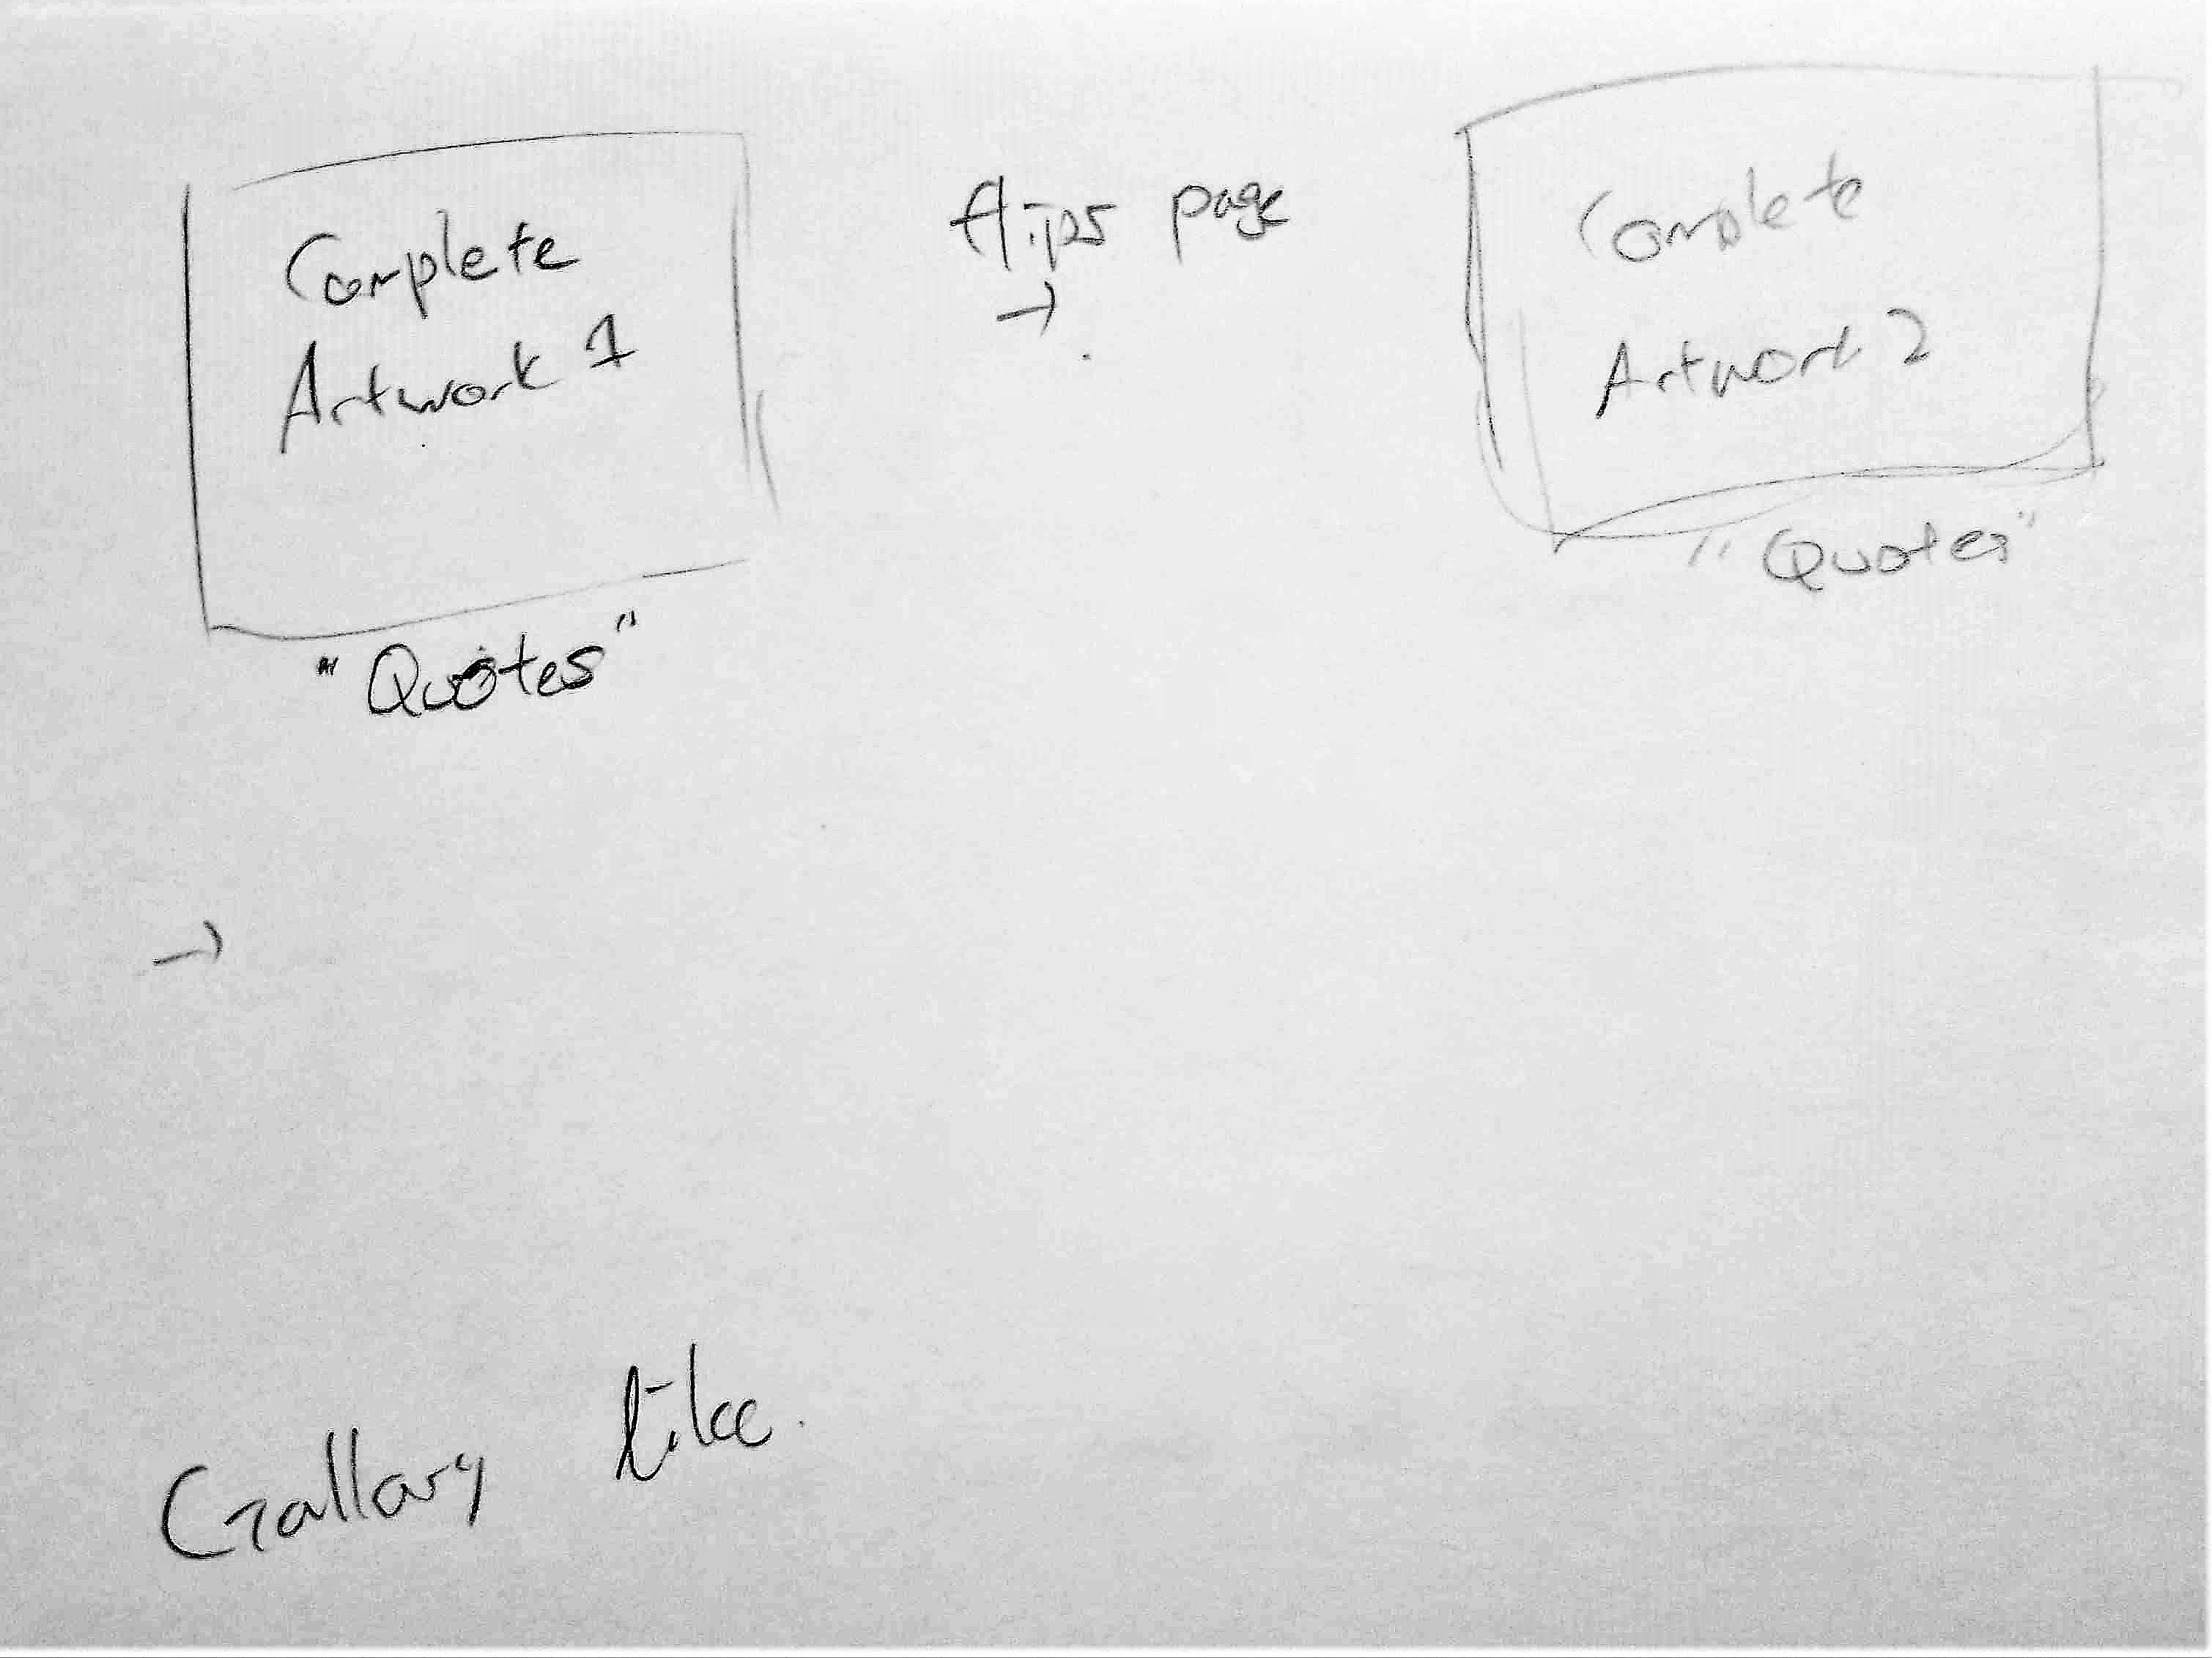 Complete
Artwork 1
"Quotes"
flips page
→
Complete
Artwork 2
"Quotes"
→
Gallary like.